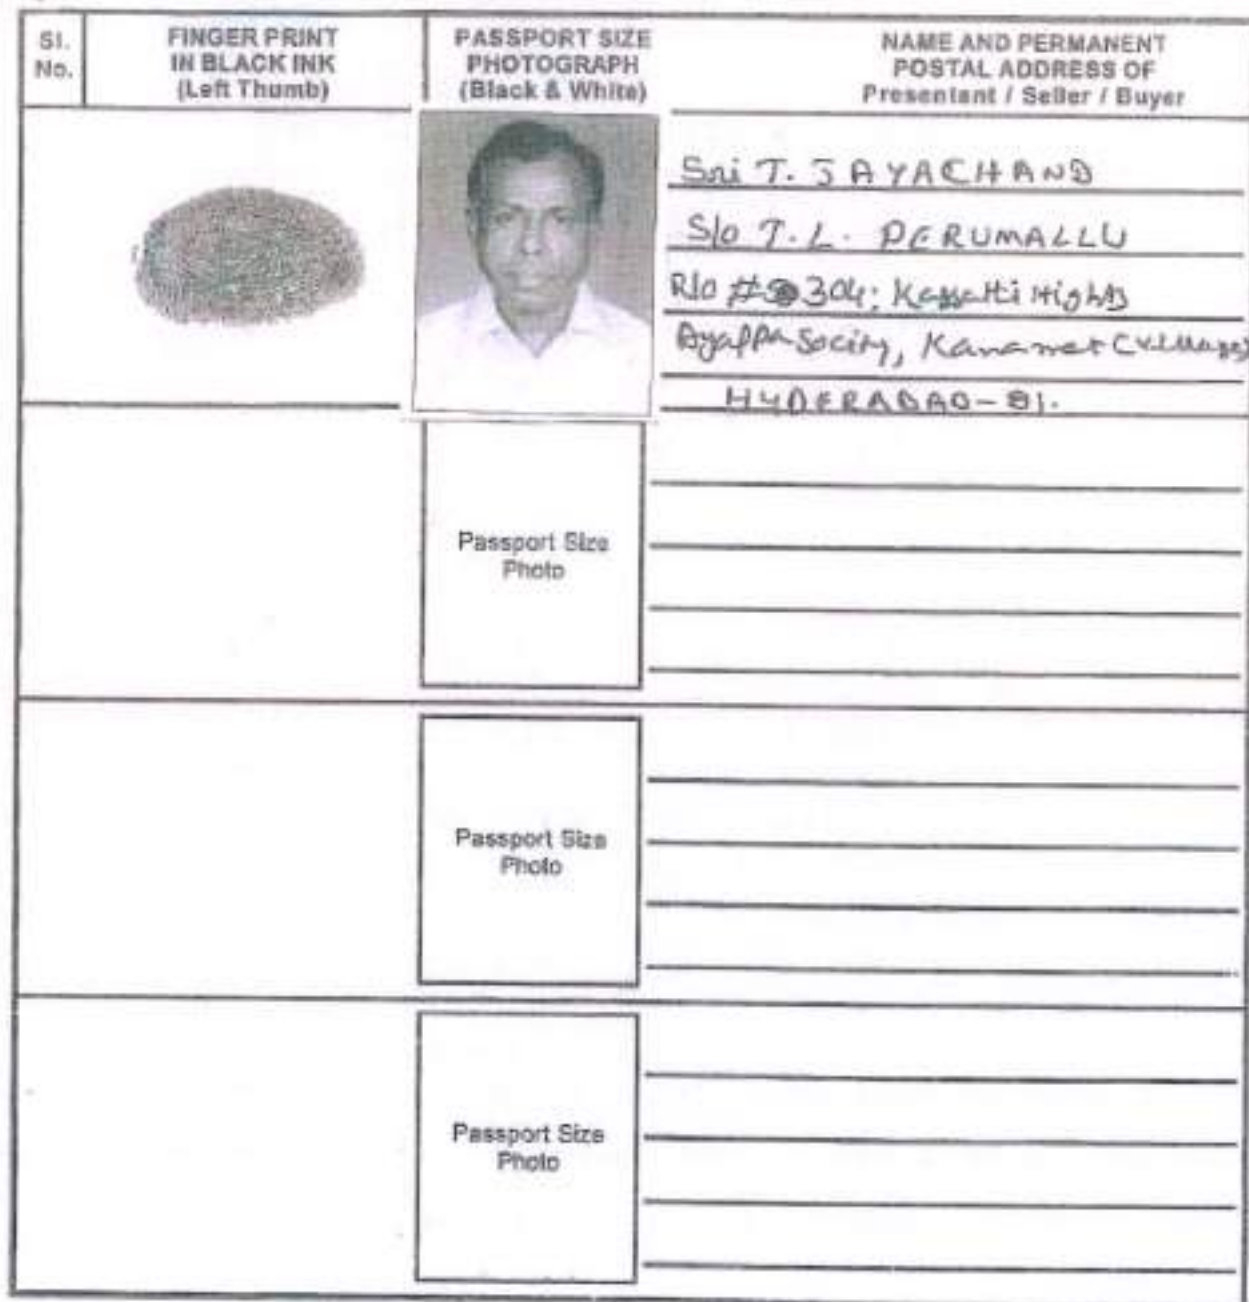 Sl. No.
FINGER PRINT
IN BLACK INK
(Left Thumb)
PASSPORT SIZE
PHOTOGRAPH
(Black & White)
NAME AND PERMANENT
POSTAL ADDRESS OF
Presentant / Seller / Buyer
Sri T. JAYACHAND
S/o T. L. PERUMALLU
R/o # 304; Hights
Society, (Village)
HYDERABAD-81.
Passport Size
Photo
Passport Size
Photo
Passport Size
Photo